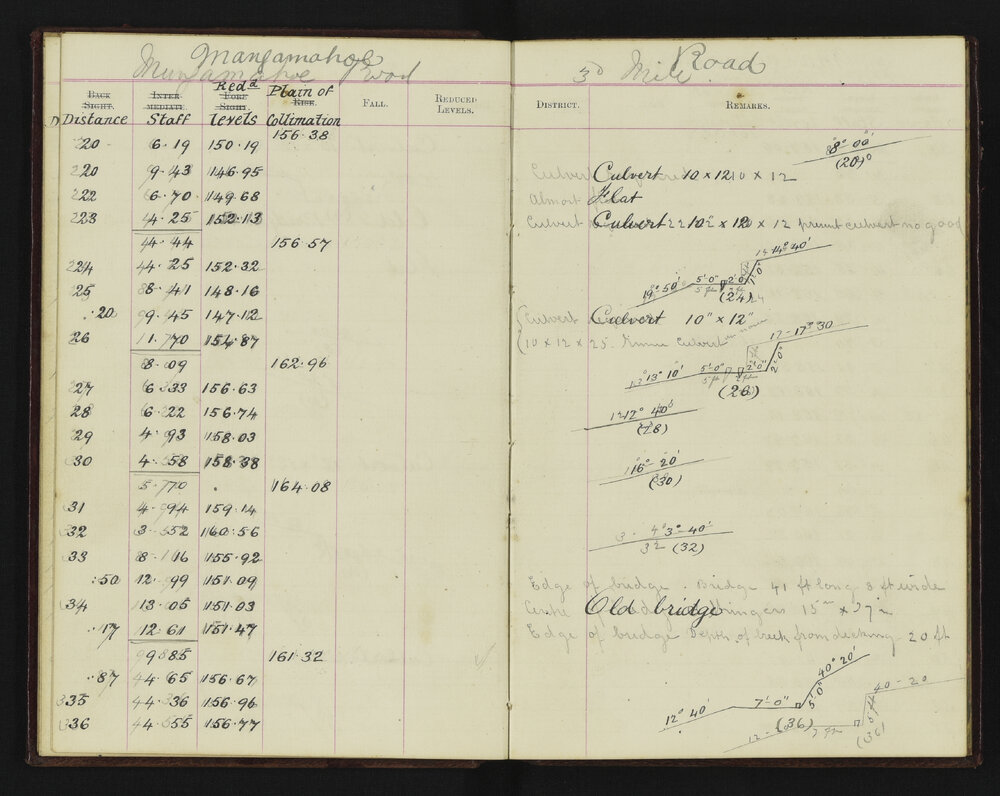 Mangamahoe Road
Mangamahoe Road 3rd Mile
BACK SIGHT. INTERMEDIATE. FORE SIGHT. RISE. FALL. REDUCED LEVELS. DISTRICT. REMARKS.
Distance Staff Red.d levels Plain of Collimation
156.38
20 6.19 150.19 8° 00' (20)
20 9.43 146.95 Culvert 10 x 12
22 6.70 149.68 Almost Flat
23 4.25 152.13 Culvert 10" x 12 present culvert no good
4.44 156.57
24 4.25 152.32 14° 40'
25 8.41 148.16 19° 50' 5'0" 2'0" (24)
.20 9.45 147.12 Culvert 10" x 12"
26 1.70 154.87 10 x 12 x 25 Culvert 17° 30
8.09 162.96
27 6.33 156.63 13° 10' 5'0" 2'0" 2'0" (26)
28 6.22 156.74 12° 40' (28)
29 4.93 158.03
30 4.58 158.38 16° 20' (30)
5.70 164.08
31 4.94 159.14
32 3.52 160.56 3° 40' (32)
33 8.16 155.92
.50 12.99 151.09 Edge of bridge. Bridge 41 ft long 8 ft wide
34 13.05 151.03 Centre Old bridge stringers 15"
.17 12.61 151.47 Edge of bridge Depth of creek from decking 20 ft
9.85 161.32
.87 4.65 156.67 40° 20' 40-20
35 4.36 156.96 12° 40' 7'0" 5'0"
36 4.55 156.77 (36) (36)